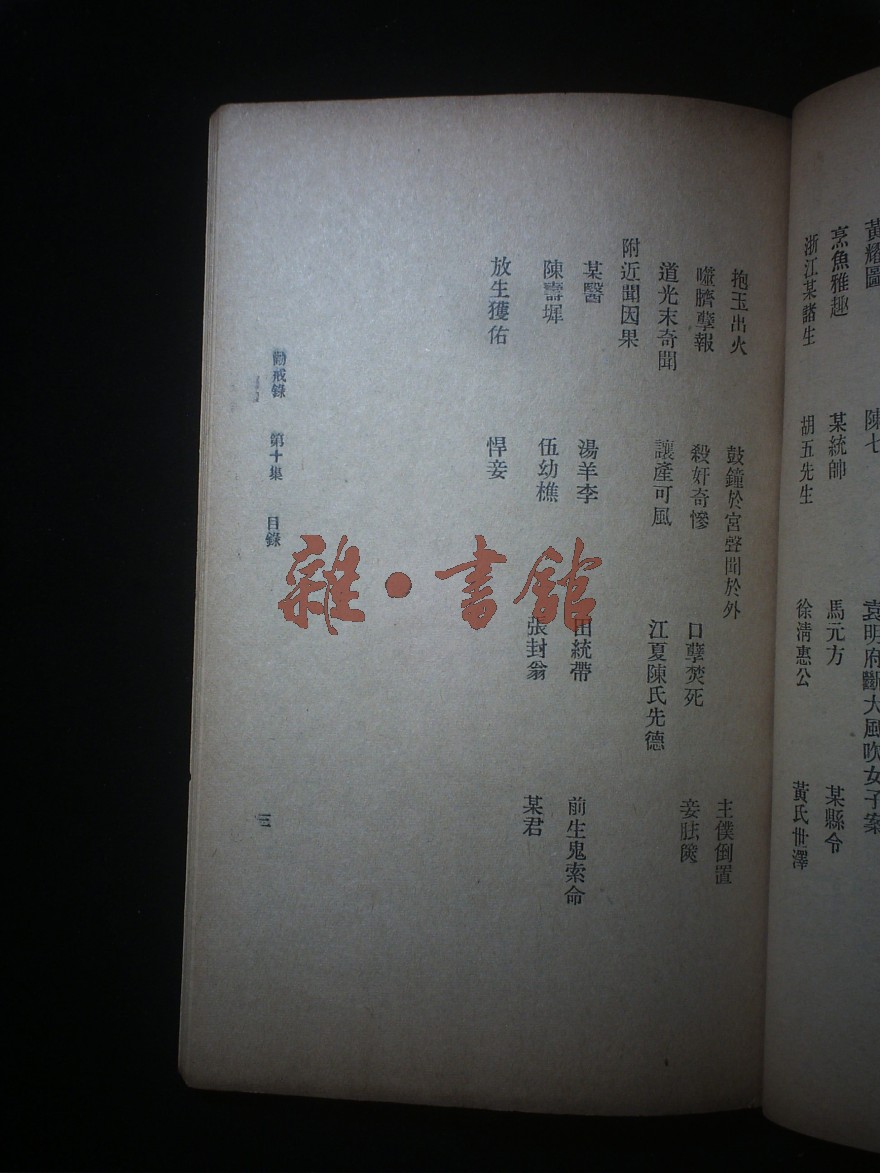 黃耀圖 陳七 袁明府斷大風吹女子案
烹魚雅趣 某統帥 馬元方 某縣令
浙江某諸生 胡五先生 徐清惠公 黃氏世澤
抱玉出火 鼓鐘於宮聲聞於外 主僕倒置
噬臍孽報 殺奸奇慘 口孽焚死 妾胠篋
道光末奇聞 讓產可風 江夏陳氏先德
附近聞因果
某醫 湯羊李 田統帶 前生鬼索命
陳壽墀 伍幼樵 張封翁 某君
放生獲佑 悍妾
勸戒錄 第十集 目錄 三
雜·書館